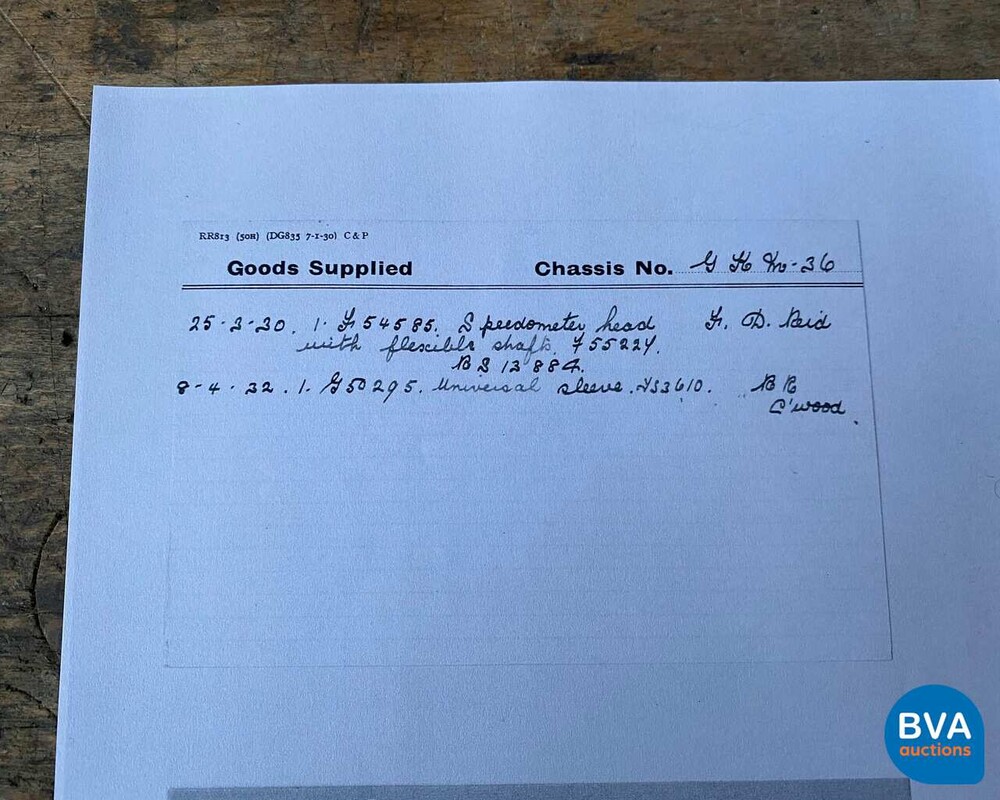 RR813 (50H) (DG835 7-1-30) C & P
Goods Supplied Chassis No. G K M-36
25-3-30. 1. F54585. Speedometer head F. D. Reid
with flexible shaft. F55224.
BS 12884.
8-4-32. 1. G50295. Universal sleeve. VS3610. BR
C'wood.
BVA
auctions